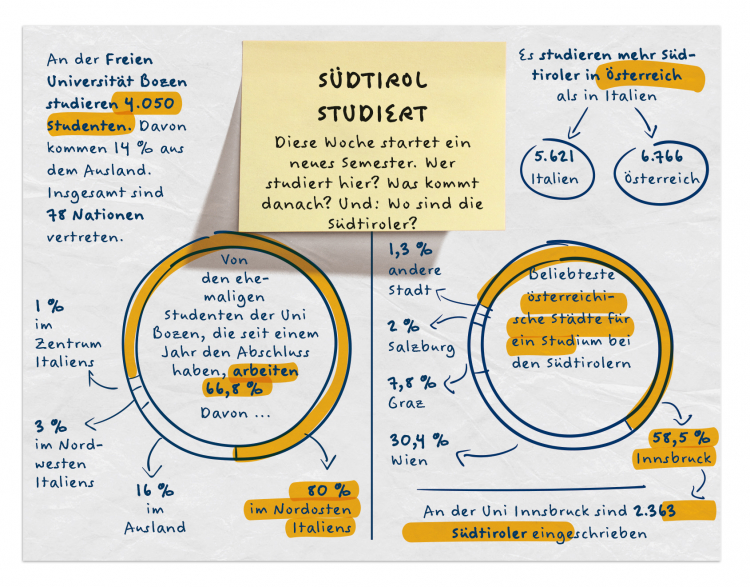 SÜDTIROL
STUDIERT
Diese Woche startet ein
neues Semester. Wer
studiert hier? Was kommt
danach? Und: Wo sind die
Südtiroler?
An der Freien
Universität Bozen
studieren 4.050
Studenten. Davon
kommen 14 % aus
dem Ausland.
Insgesamt sind
78 Nationen
vertreten.
Es studieren mehr Süd-
tiroler in Österreich
als in Italien
5.621
Italien
6.766
Österreich
Von
den ehe-
maligen
Studenten der Uni
Bozen, die seit einem
Jahr den Abschluss
haben, arbeiten
66,8 %
Davon ...
1 %
im
Zentrum
Italiens
3 %
im Nord-
westen
Italiens
16 %
im
Ausland
80 %
im Nordosten
Italiens
Beliebteste
österreichi-
sche Städte für
ein Studium bei
den Südtirolern
1,3 %
andere
Stadt
2 %
Salzburg
7,8 %
Graz
30,4 %
Wien
58,5 %
Innsbruck
An der Uni Innsbruck sind 2.363
Südtiroler eingeschrieben